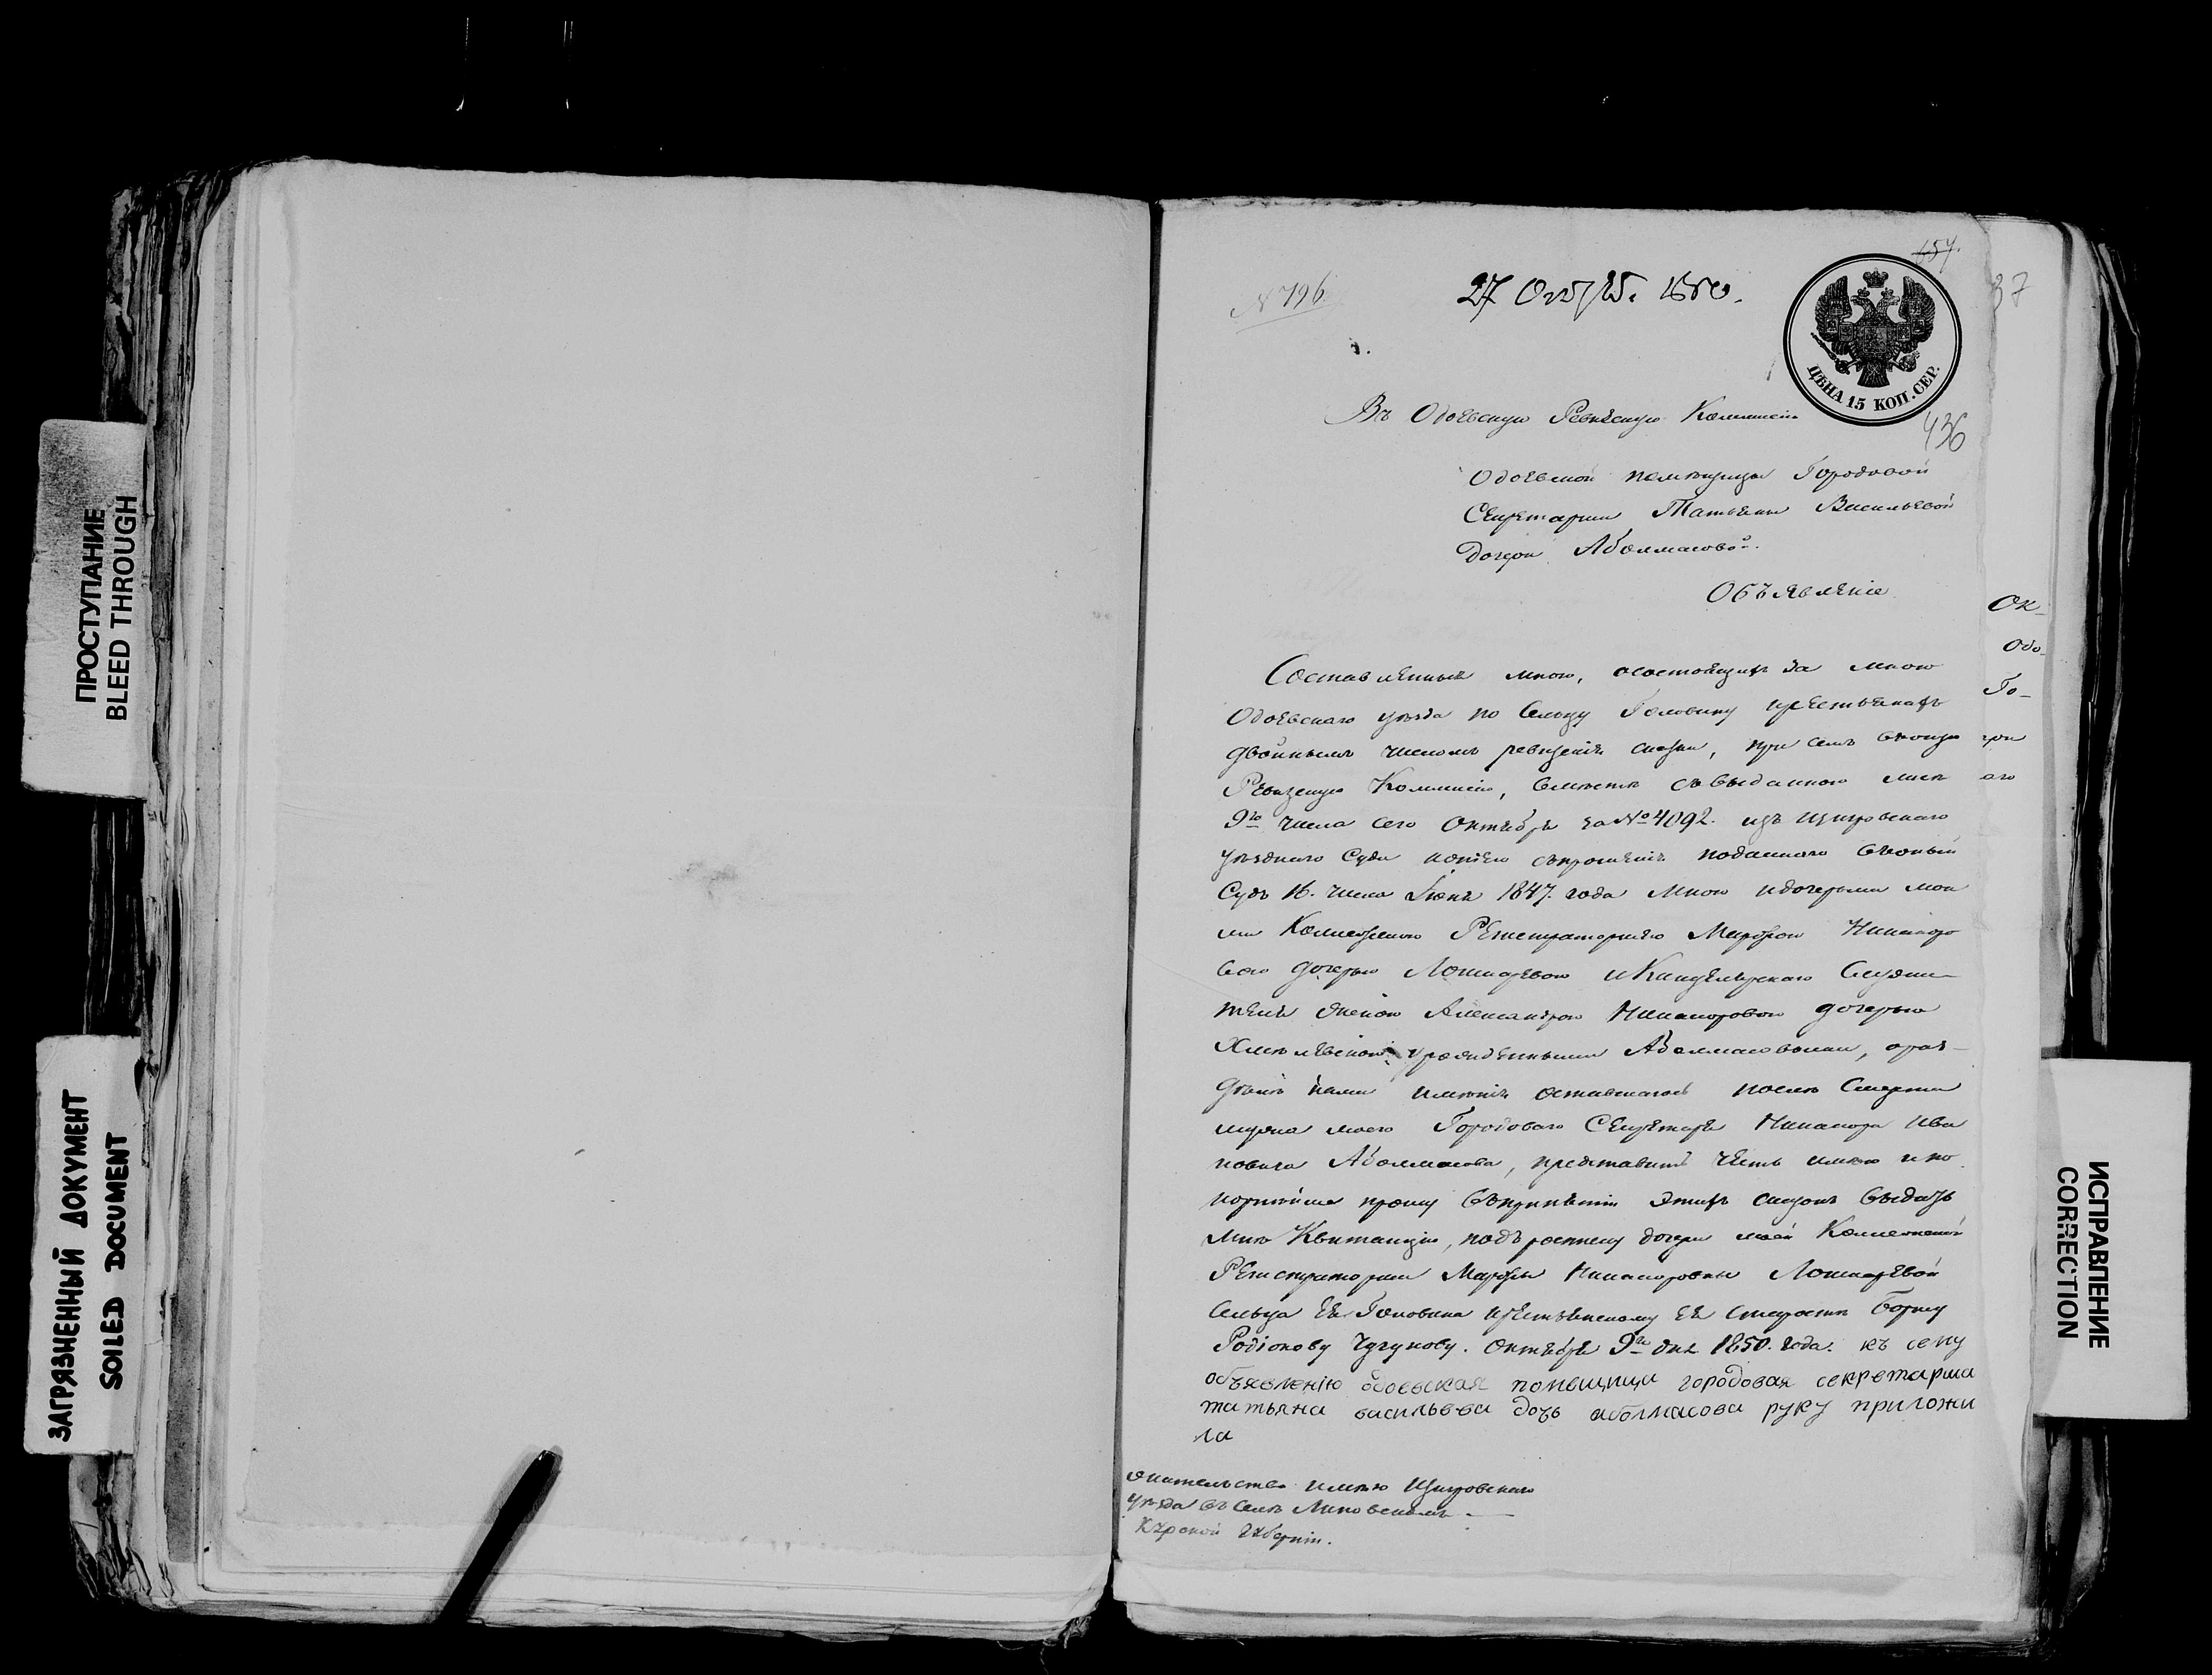 ПРОСТУПАНИЕ
BLEED THROUGH
ЗАГРЯЗНЕННЫЙ ДОКУМЕНТ
SOILED DOCUMENT
654.
№ 796
27 Окт. 1850.
37
ЦѢНА 15 КОП. СЕР.
436
Въ Одоевскую Ревизскую Коммисію
Одоевской помѣщицы Городовой
Секретарши Татьяны Васильевой
дочери Аболмасовой.
Объявленіе
Составленныя мною, о состоящихъ за мною
Одоевскаго уѣзда по Сельцу Головину крестьянахъ
двойнымъ числомъ ревизскія сказки, при семъ въ оную
Ревизскую Коммисію, вмѣстѣ съ выданною мнѣ
9го числа сего Октября за № 4092. изъ Щигровскаго
уѣзднаго Суда копіею съ прошенія поданнаго въ оный
Судъ 16. числа Іюня 1847. года мною и дочерьми мои
ми Коллежскою Регистраторшею Марфою Никаноро
вою дочерью Лошкаревою и Канцелярскаго Служи
теля женою Александрою Никаноровою дочерью
Хмелевскою урожденными Аболмасовыми, о раз-
дѣлѣ нами имѣнія оставшагося послѣ Смерти
мужа моего Городоваго Секретаря Никанора Ива
новича Аболмасова, представить честь имѣю и по
корнѣйше прошу въ принятіи этихъ сказокъ выдать
мнѣ Квитанцію, подъ росписку дочери моей Коллежской
Регистраторши Марфы Никаноровны Лошкаревой
Сельца Головина крестьянскому ея старостѣ
Родіонову Чугунову. Октября 9го дня 1850. года. къ сему
объявленію одоевская помещица городовая секретарша
татьяна васильева дочь аболмасова руку приложи
ла
жительство имѣю Щигровскаго
уѣзда въ Селѣ Липовскомъ
Курской Губерніи.
Ок-
Одо-
Го-
ери
аго
ИСПРАВЛЕНИЕ
CORRECTION